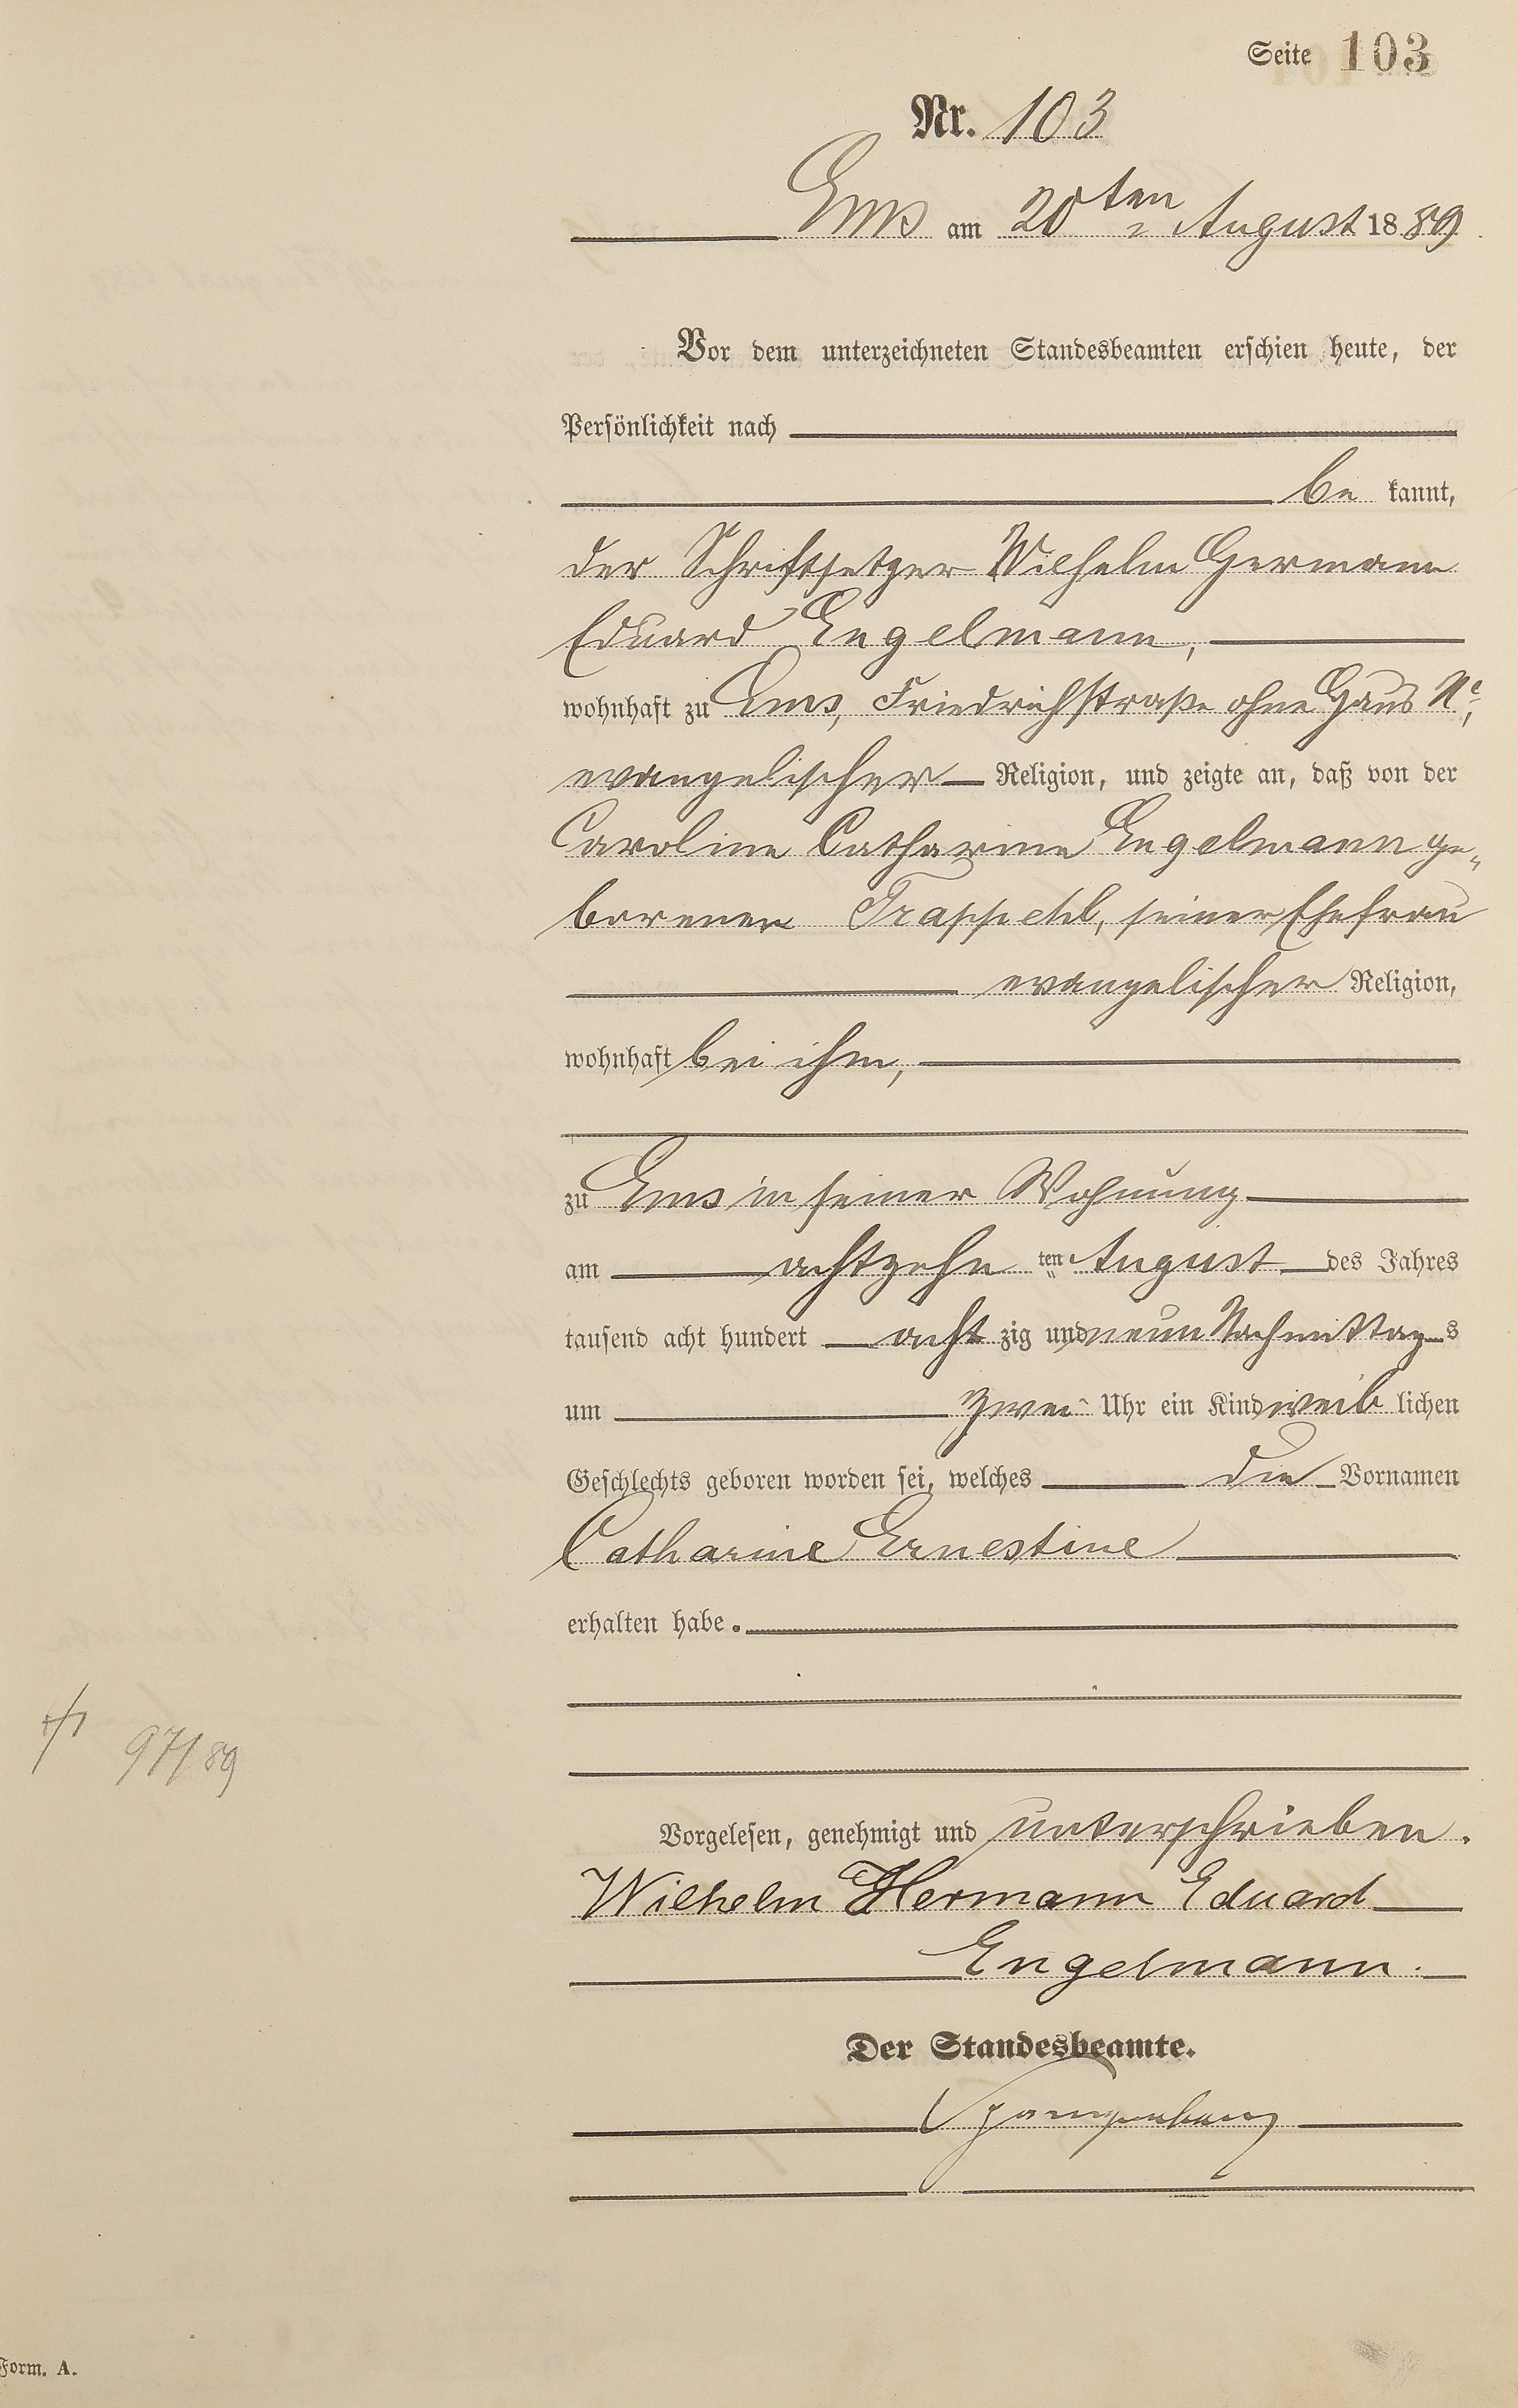 Seite 103
Nr. 103
Ems am 20ten August 1889
Vor dem unterzeichneten Standesbeamten erschien heute, der
Persönlichkeit nach
be kannt,
der Schriftsetzer Wilhelm Hermann
Eduard Engelmann,
wohnhaft zu Ems, Friedrichstraße ohne Haus No,
evangelischer Religion, und zeigte an, daß von der
Caroline Catharine Engelmann ge„
borenen Trappehl, seiner Ehefrau
evangelischer Religion,
wohnhaft bei ihm,
zu Ems in seiner Wohnung
am achtzehn ten August des Jahres
tausend acht hundert acht zig und neun Nachmittag s
um zwei Uhr ein Kind weib lichen
Geschlechts geboren worden sei, welches die Vornamen
Catharine Ernestine
erhalten habe.
97/89
Vorgelesen, genehmigt und unterschrieben.
Wilhelm Hermann Eduard
Engelmann.
Der Standesbeamte.
Form. A.